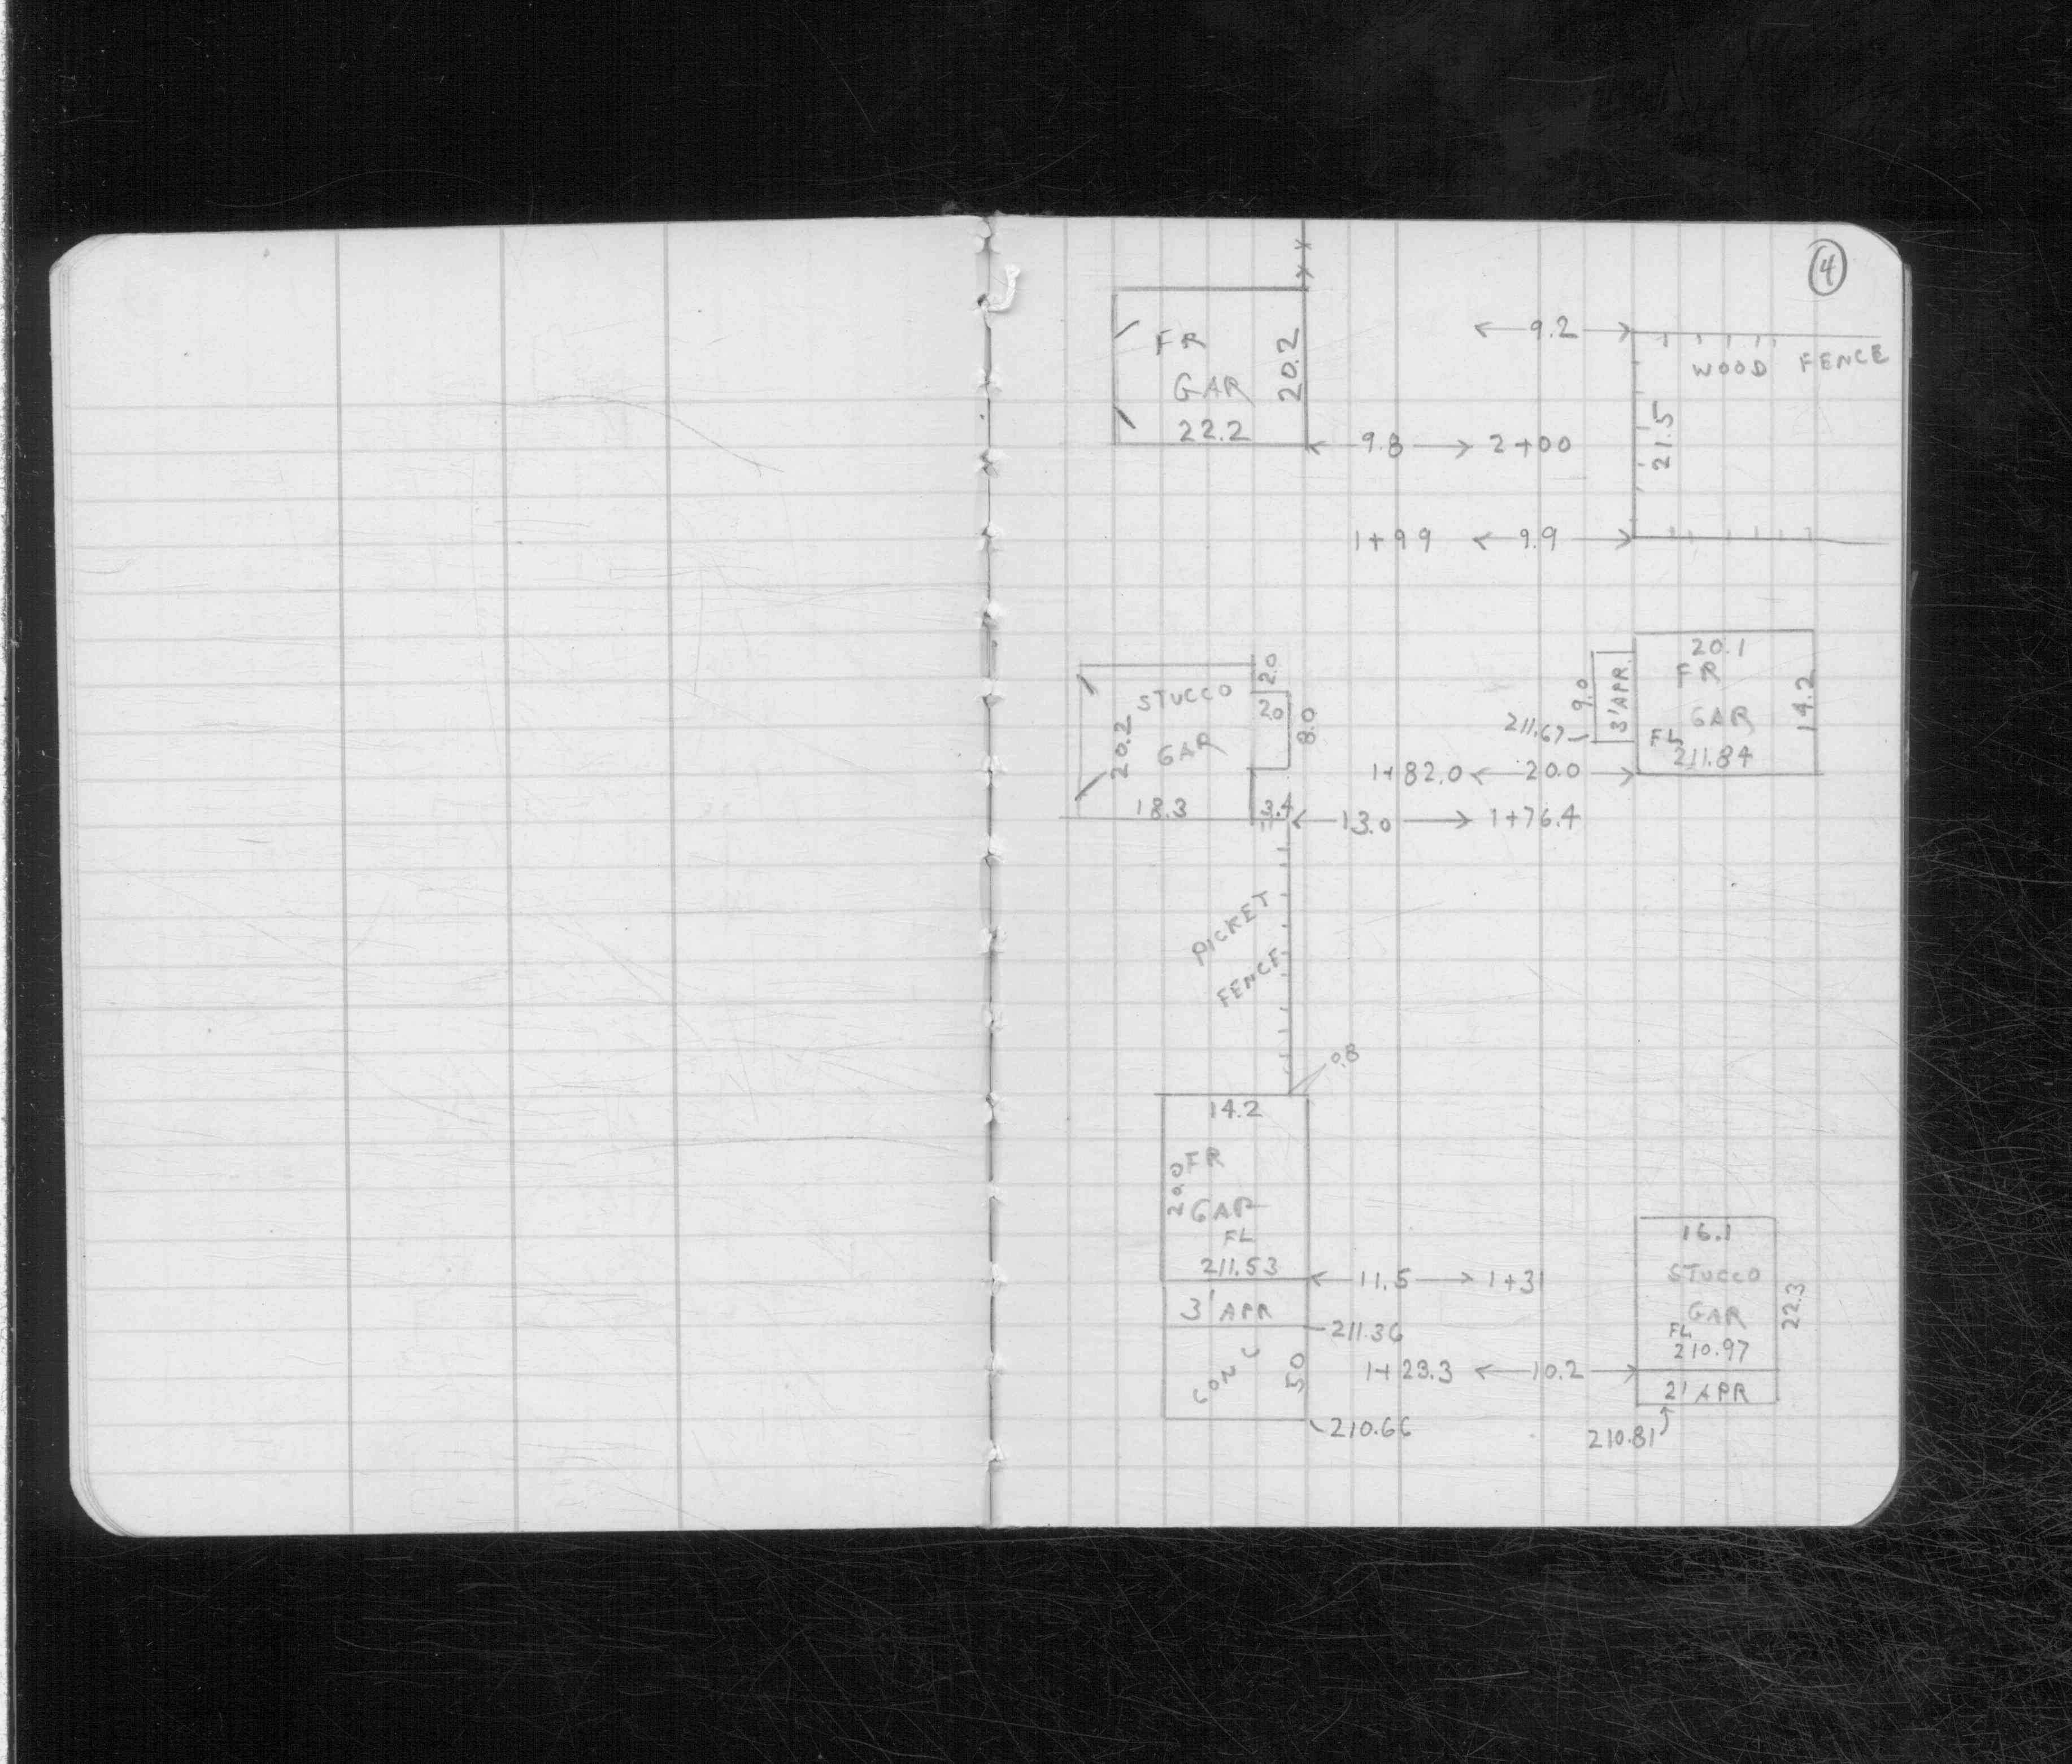 4
FR
GAR
22.2
20.2
9.2
WOOD FENCE
21.5
9.8
2+00
1+99
9.9
STUCCO
GAR
20.2
18.3
2.0
2.0
8.0
3.4
20.1
FR
GAR
FL
211.84
14.2
9.0
3'APR.
211.67
1+82.0
20.0
13.0
1+76.4
PICKET
FENCE
0.8
14.2
FR
20.0
GAR
FL
211.53
11.5
1+31
3' APR
211.36
CONC
5.0
210.66
16.1
STUCCO
GAR
FL
210.97
22.3
1+23.3
10.2
2' APR
210.81